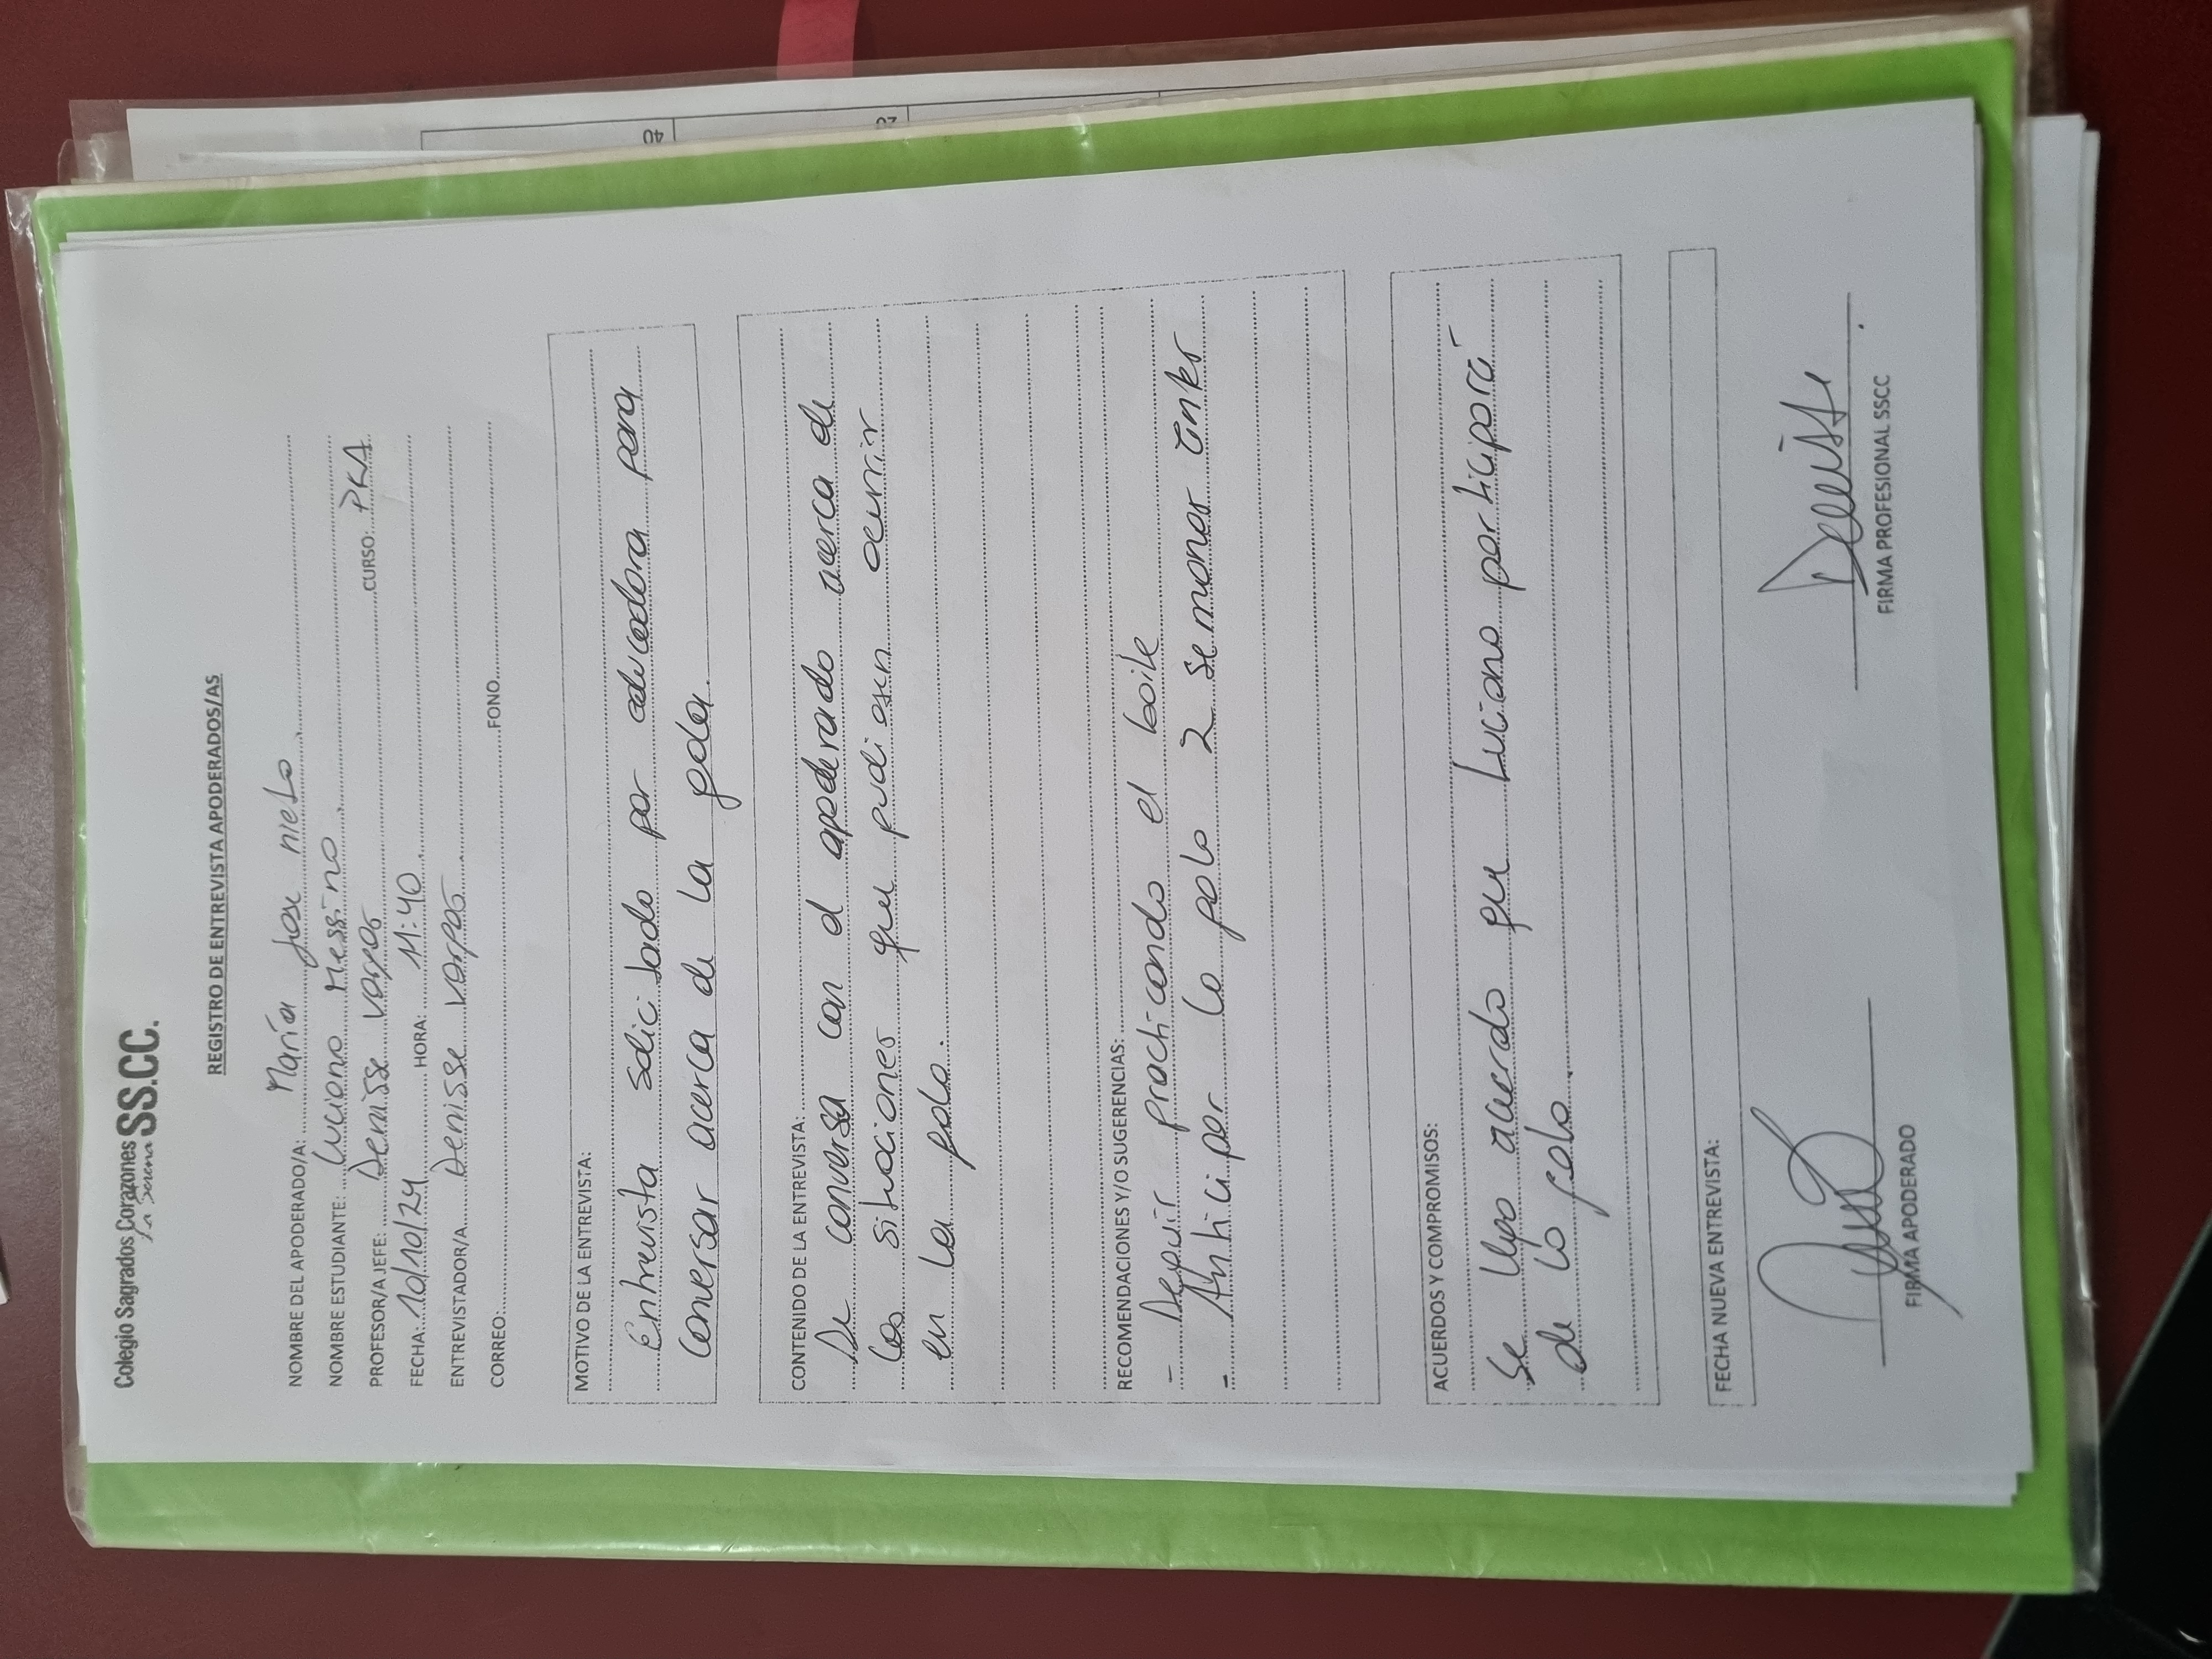 Colegio Sagrados Corazones SS.CC.
La Serena
REGISTRO DE ENTREVISTA APODERADOS/AS
NOMBRE DEL APODERADO/A: María Jose nieto
NOMBRE ESTUDIANTE: Luciano Messino
PROFESOR/A JEFE: Denisse Vargas CURSO: PKA
FECHA: 10/10/24 HORA: 11:40
ENTREVISTADOR/A Denisse Vargas
CORREO: FONO
MOTIVO DE LA ENTREVISTA:
Entrevista solicitado por educadora para
conversar acerca de la gala.
CONTENIDO DE LA ENTREVISTA:
Se conversa con el apoderado acerca de
las situaciones que pudiesen ocurrir
en la gala.
RECOMENDACIONES Y/O SUGERENCIAS:
- Seguir practicando el baile
- Anticipar la gala 2 semanas antes
ACUERDOS Y COMPROMISOS:
Se llega acuerdo que Luciano participará
de la gala.
FECHA NUEVA ENTREVISTA:
Denisse
FIRMA APODERADO FIRMA PROFESIONAL SSCC